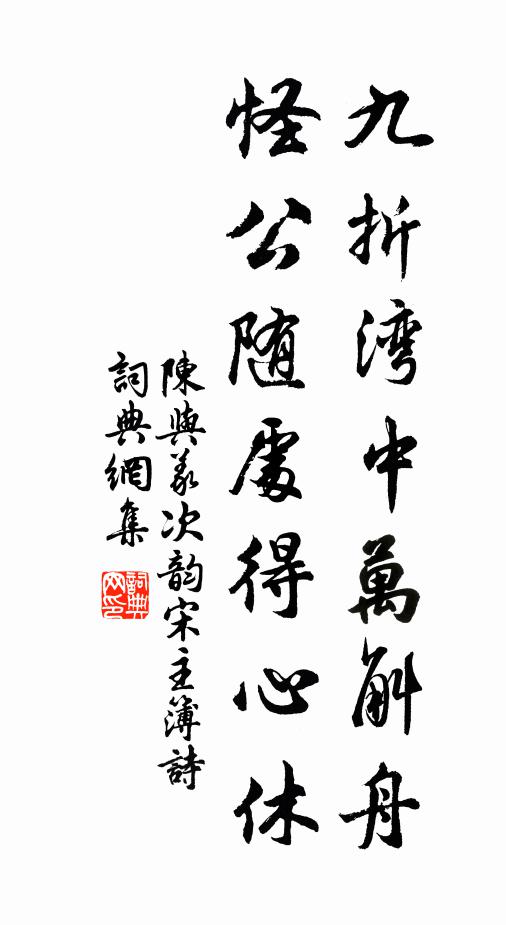 九折湾中萬斛舟
怪公随處得心休
陳與義次韵宋主簿詩
詞典網集
詞典網印